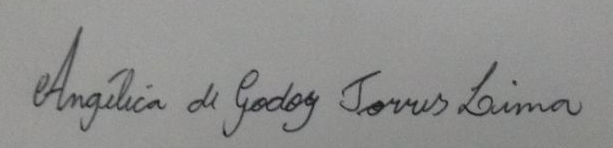 Angélica de Godoy Torres Lima